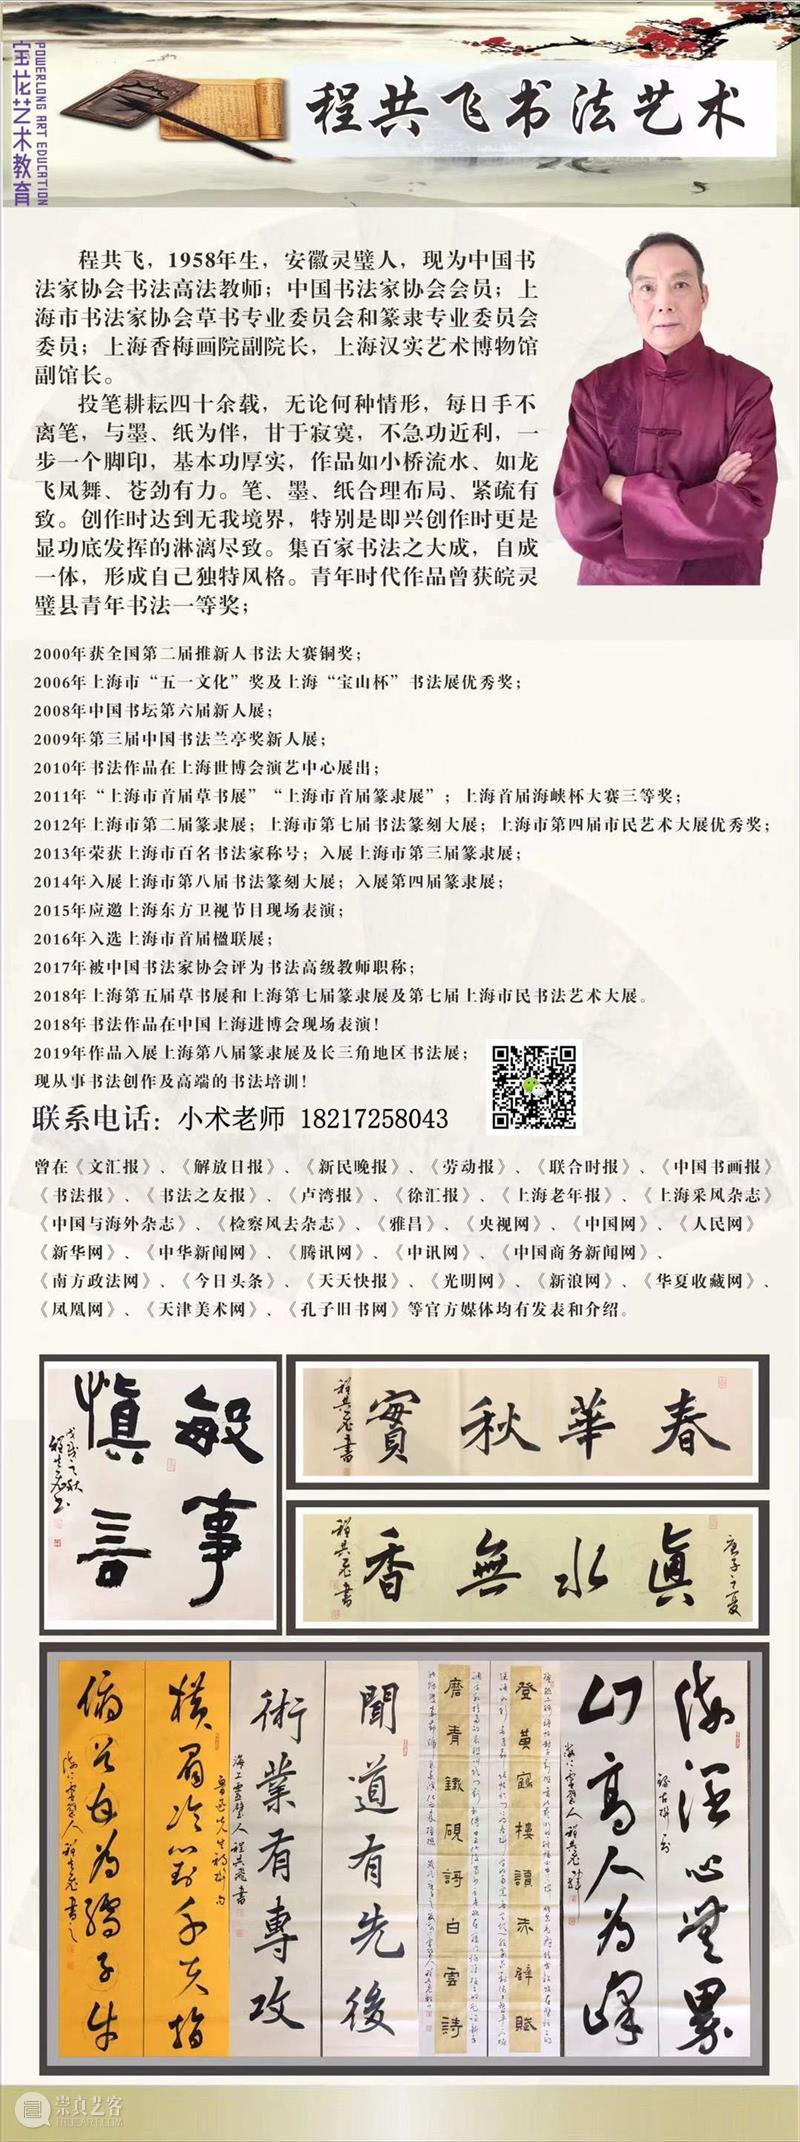 宝龙艺术教育
POWERLONG ART EDUCATION
程共飞书法艺术
程共飞，1958年生，安徽灵璧人，现为中国书
法家协会书法高法教师；中国书法家协会会员；上
海市书法家协会草书专业委员会和篆隶专业委员会
委员；上海香梅画院副院长，上海汉实艺术博物馆
副馆长。
投笔耕耘四十余载，无论何种情形，每日手不
离笔，与墨、纸为伴，甘于寂寞，不急功近利，一
步一个脚印，基本功厚实，作品如小桥流水、如龙
飞凤舞、苍劲有力。笔、墨、纸合理布局、紧疏有
致。创作时达到无我境界，特别是即兴创作时更是
显功底发挥的淋漓尽致。集百家书法之大成，自成
一体，形成自己独特风格。青年时代作品曾获皖灵
璧县青年书法一等奖；
2000年获全国第二届推新人书法大赛铜奖；
2006年上海市“五一文化”奖及上海“宝山杯”书法展优秀奖；
2008年中国书坛第六届新人展；
2009年第三届中国书法兰亭奖新人展；
2010年书法作品在上海世博会演艺中心展出；
2011年“上海市首届草书展”“上海市首届篆隶展”；上海首届海峡杯大赛三等奖；
2012年上海市第二届篆隶展；上海市第七届书法篆刻大展；上海市第四届市民艺术大展优秀奖；
2013年荣获上海市百名书法家称号；入展上海市第三届篆隶展；
2014年入展上海市第八届书法篆刻大展；入展第四届篆隶展；
2015年应邀上海东方卫视节目现场表演；
2016年入选上海市首届楹联展；
2017年被中国书法家协会评为书法高级教师职称；
2018年上海第五届草书展和上海第七届篆隶展及第七届上海市民书法艺术大展。
2018年书法作品在中国上海进博会现场表演！
2019年作品入展上海第八届篆隶展及长三角地区书法展；
现从事书法创作及高端的书法培训！
联系电话：小术老师 18217258043
曾在《文汇报》、《解放日报》、《新民晚报》、《劳动报》、《联合时报》、《中国书画报》
《书法报》、《书法之友报》、《卢湾报》、《徐汇报》、《上海老年报》、《上海采风杂志》
《中国与海外杂志》、《检察风去杂志》、《雅昌》、《央视网》、《中国网》、《人民网》
《新华网》、《中华新闻网》、《腾讯网》、《中讯网》、《中国商务新闻网》、
《南方政法网》、《今日头条》、《天天快报》、《光明网》、《新浪网》、《华夏收藏网》、
《凤凰网》、《天津美术网》、《孔子旧书网》等官方媒体均有发表和介绍。
敏事
慎言
戊戌之秋
程共飞书
春華秋實
程共飞書
庚子之夏
真水無香
程共飞書
海涵心無累
山高人为峰
海上灵璧人程共飞
登黄鶴樓讀赤壁賦
磨青鐵硯詩白雲詩
聞道有先後
術業有專攻
海上靈璧人程共飛書
横眉冷对千夫指
魯迅先生詩句
俯首甘为孺子牛
海上灵璧人程共飞書
崇真艺客
TRUEART.COM